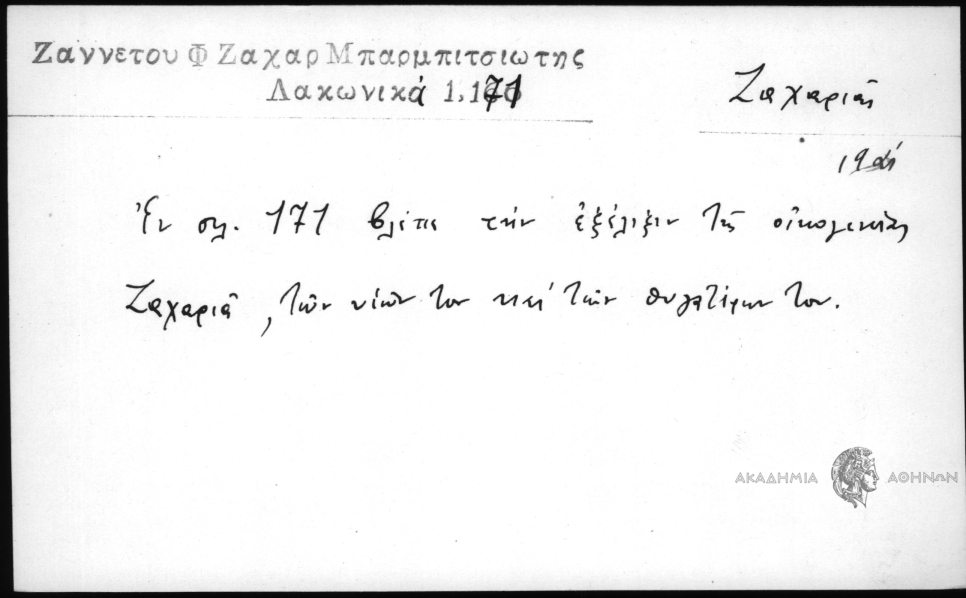 Ζαννετου Φ Ζαχαρ Μπαρμπιτσιωτης
Λακωνικά 1.171
Ζαχαριᾶς
Ἐν σελ. 171 βλέπε τὴν ἐξέλιξιν τῆς οἰκογενείας
Ζαχαριᾶ, τῶν υἱῶν του καὶ τῶν θυγατέρων του.
ΑΚΑΔΗΜΙΑ ΑΘΗΝΩΝ